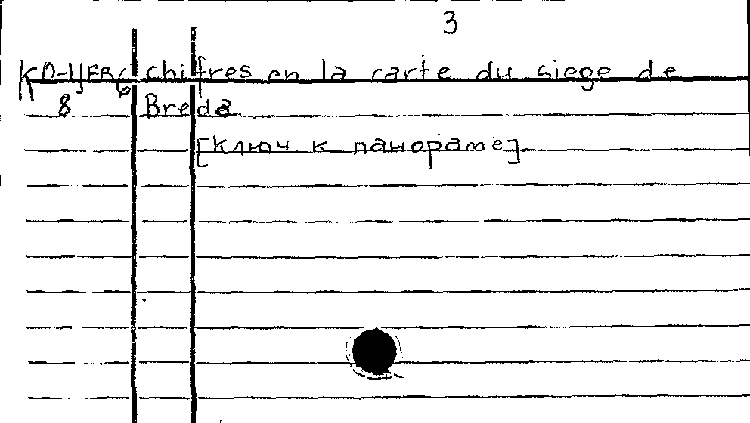 3
chifres en la carte du siege de
8 Breda
[Ключ к панораме]